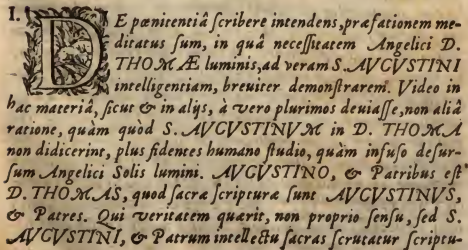 I. DE pœnitentiâ ſcribere intendens, præfationem me-
ditatus ſum, in quâ neceſſitatem Angelici D.
THOMÆ luminis, ad veram S. AVGVSTINI
intelligentiam, breviter demonſtrarem. Video in
hac materiâ, ſicut & in alijs, à vero plurimos deviaſſe, non aliâ
ratione, quàm quòd S. AVGVSTINVM in D. THOMA
non didicerint, plus fidentes humano ſtudio, quàm infuſo deſur-
ſum Angelici Solis lumini. AVGVSTINO, & Patribus eſt
D. THOMAS, quod ſacræ ſcripturæ ſunt AVGVSTINVS,
& Patres. Qui veritatem quærit, non proprio ſenſu, ſed S.
AVGVSTINI, & Patrum intellectu ſacras ſcrutatur ſcriptu-